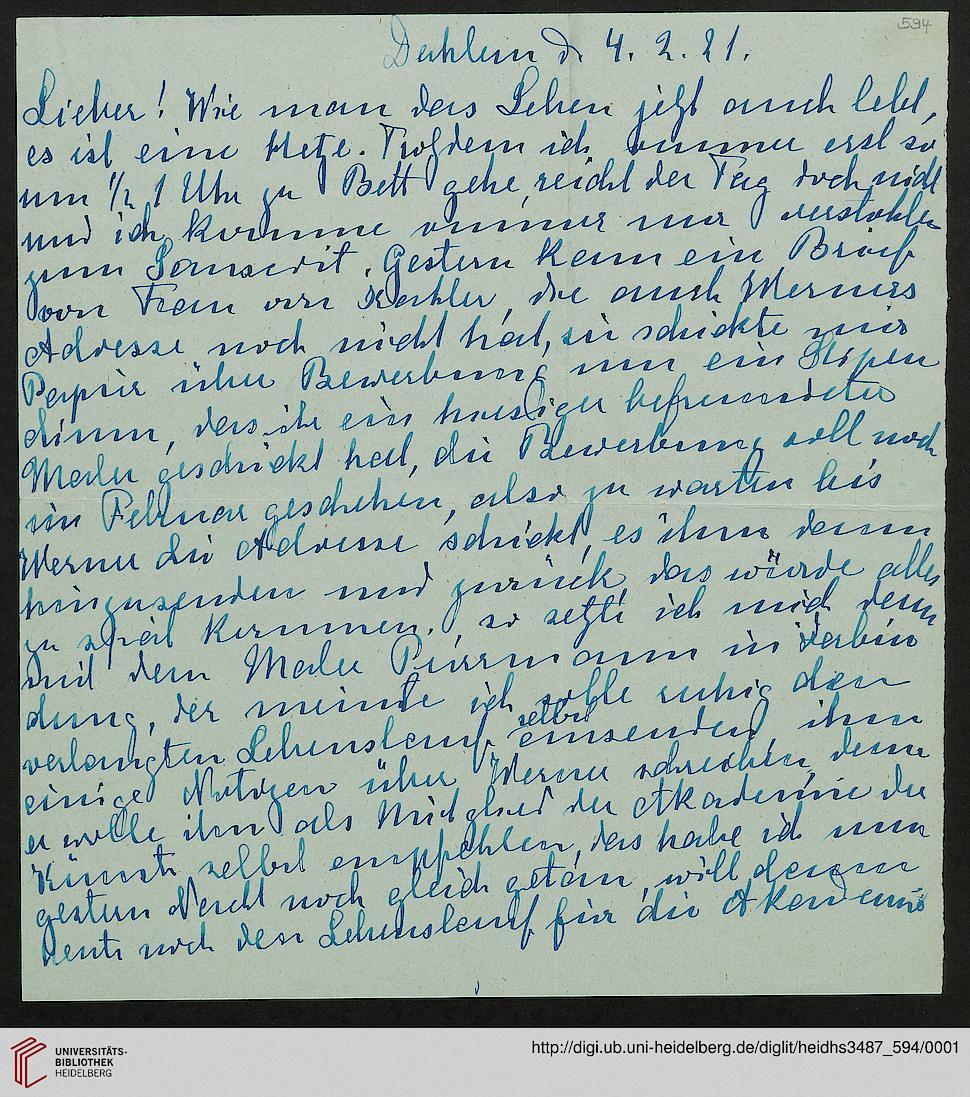 594
Dahlem d. 4. 2. 21.
Lieber! Wie man das Leben jetzt auch lebt,
es ist eine Hetze. Trotzdem ich immer erst so
um 1/2 1 Uhr zu Bett gehe, reicht der Tag doch nicht
und ich komme immer nur verstohlen
zum Sanscrit. Gestern kam ein Brief
von Frau von Kahler, die auch Werners
Adresse noch nicht hat, sie schickte mir
Papier über Bewerbung um ein Stipen
dium, das ihr ein hiesiger befreundeter
Maler geschickt hat, die Bewerbung soll noch
im Februar geschehen, also zu warten bis
Werner die Adresse schickt, es ihm dann
hinzusenden und zurück das würde alles
zu spät kommen, so setzte ich mich denn
mit dem Maler Purrmann in Verbin
dung, der meinte ich solle ruhig den
verlangten Lebenslauf selbst einsenden, ihm
einige Notizen über Werner schreiben, denn
er wolle ihn als Mitglied der Akademie der
Künste selbst empfehlen, das habe ich nun
gestern Nacht noch gleich getan, will dann
heute noch den Lebenslauf für die Akademie
UNIVERSITÄTS-
BIBLIOTHEK
HEIDELBERG
http://digi.ub.uni-heidelberg.de/diglit/heidhs3487_594/0001